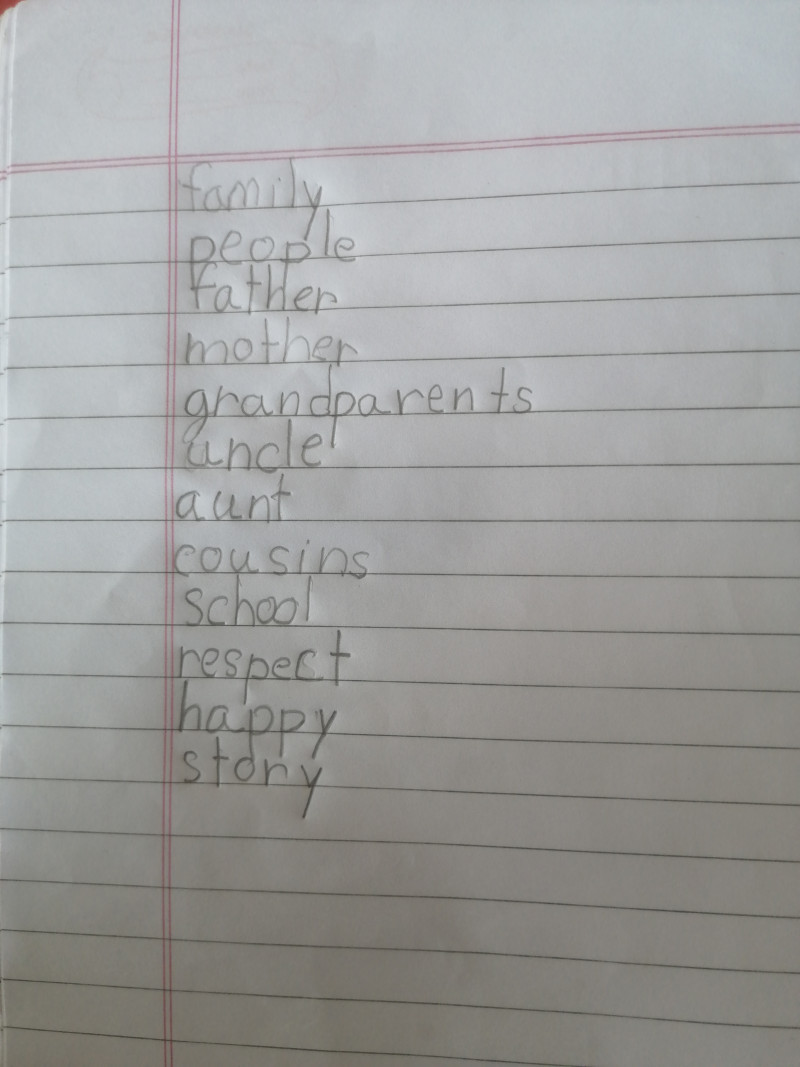 family
people
father
mother
grandparents
uncle
aunt
cousins
school
respect
happy
story